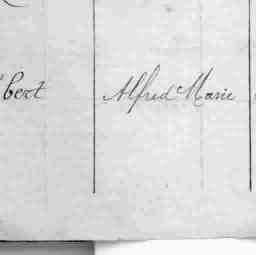 bert Alfred Marie